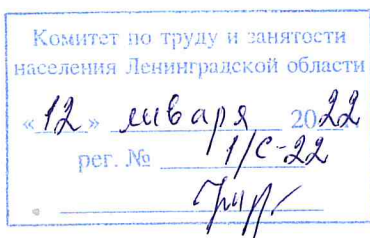 Комитет по труду и занятости
населения Ленинградской области
«12» января 2022
рег. № 1/С-22